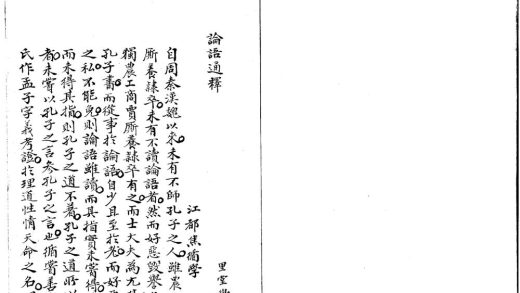 論語通釋 里堂學
江都焦循學
自周秦漢魏以來未有不師孔子之人雖農
廝養隸卒未有不讀論語者然而好惡毀譽
獨農工商賈廝養隸卒有之而士大夫為尤
孔子書而從事於論語自少且至於老而好
之私不能免則論語雖讀而其指實未嘗得
而未得其指則孔子之道不著孔子之道所以
者未嘗以孔子之言參孔子之言也循嘗善
氏作孟子字義考證於理道性情天命之名